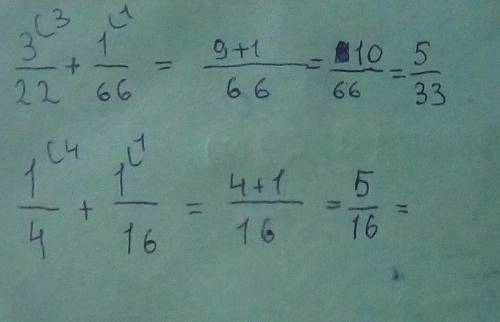 3⁽³/22 + 1⁽¹/66 = 9+1/66 = 10/66 = 5/33
1⁽⁴/4 + 1⁽¹/16 = 4+1/16 = 5/16 =